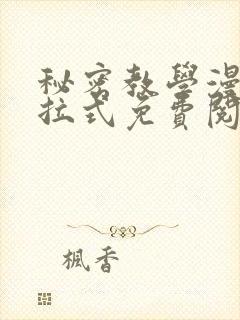 秘密教學漫
拉式免費閱
楓香